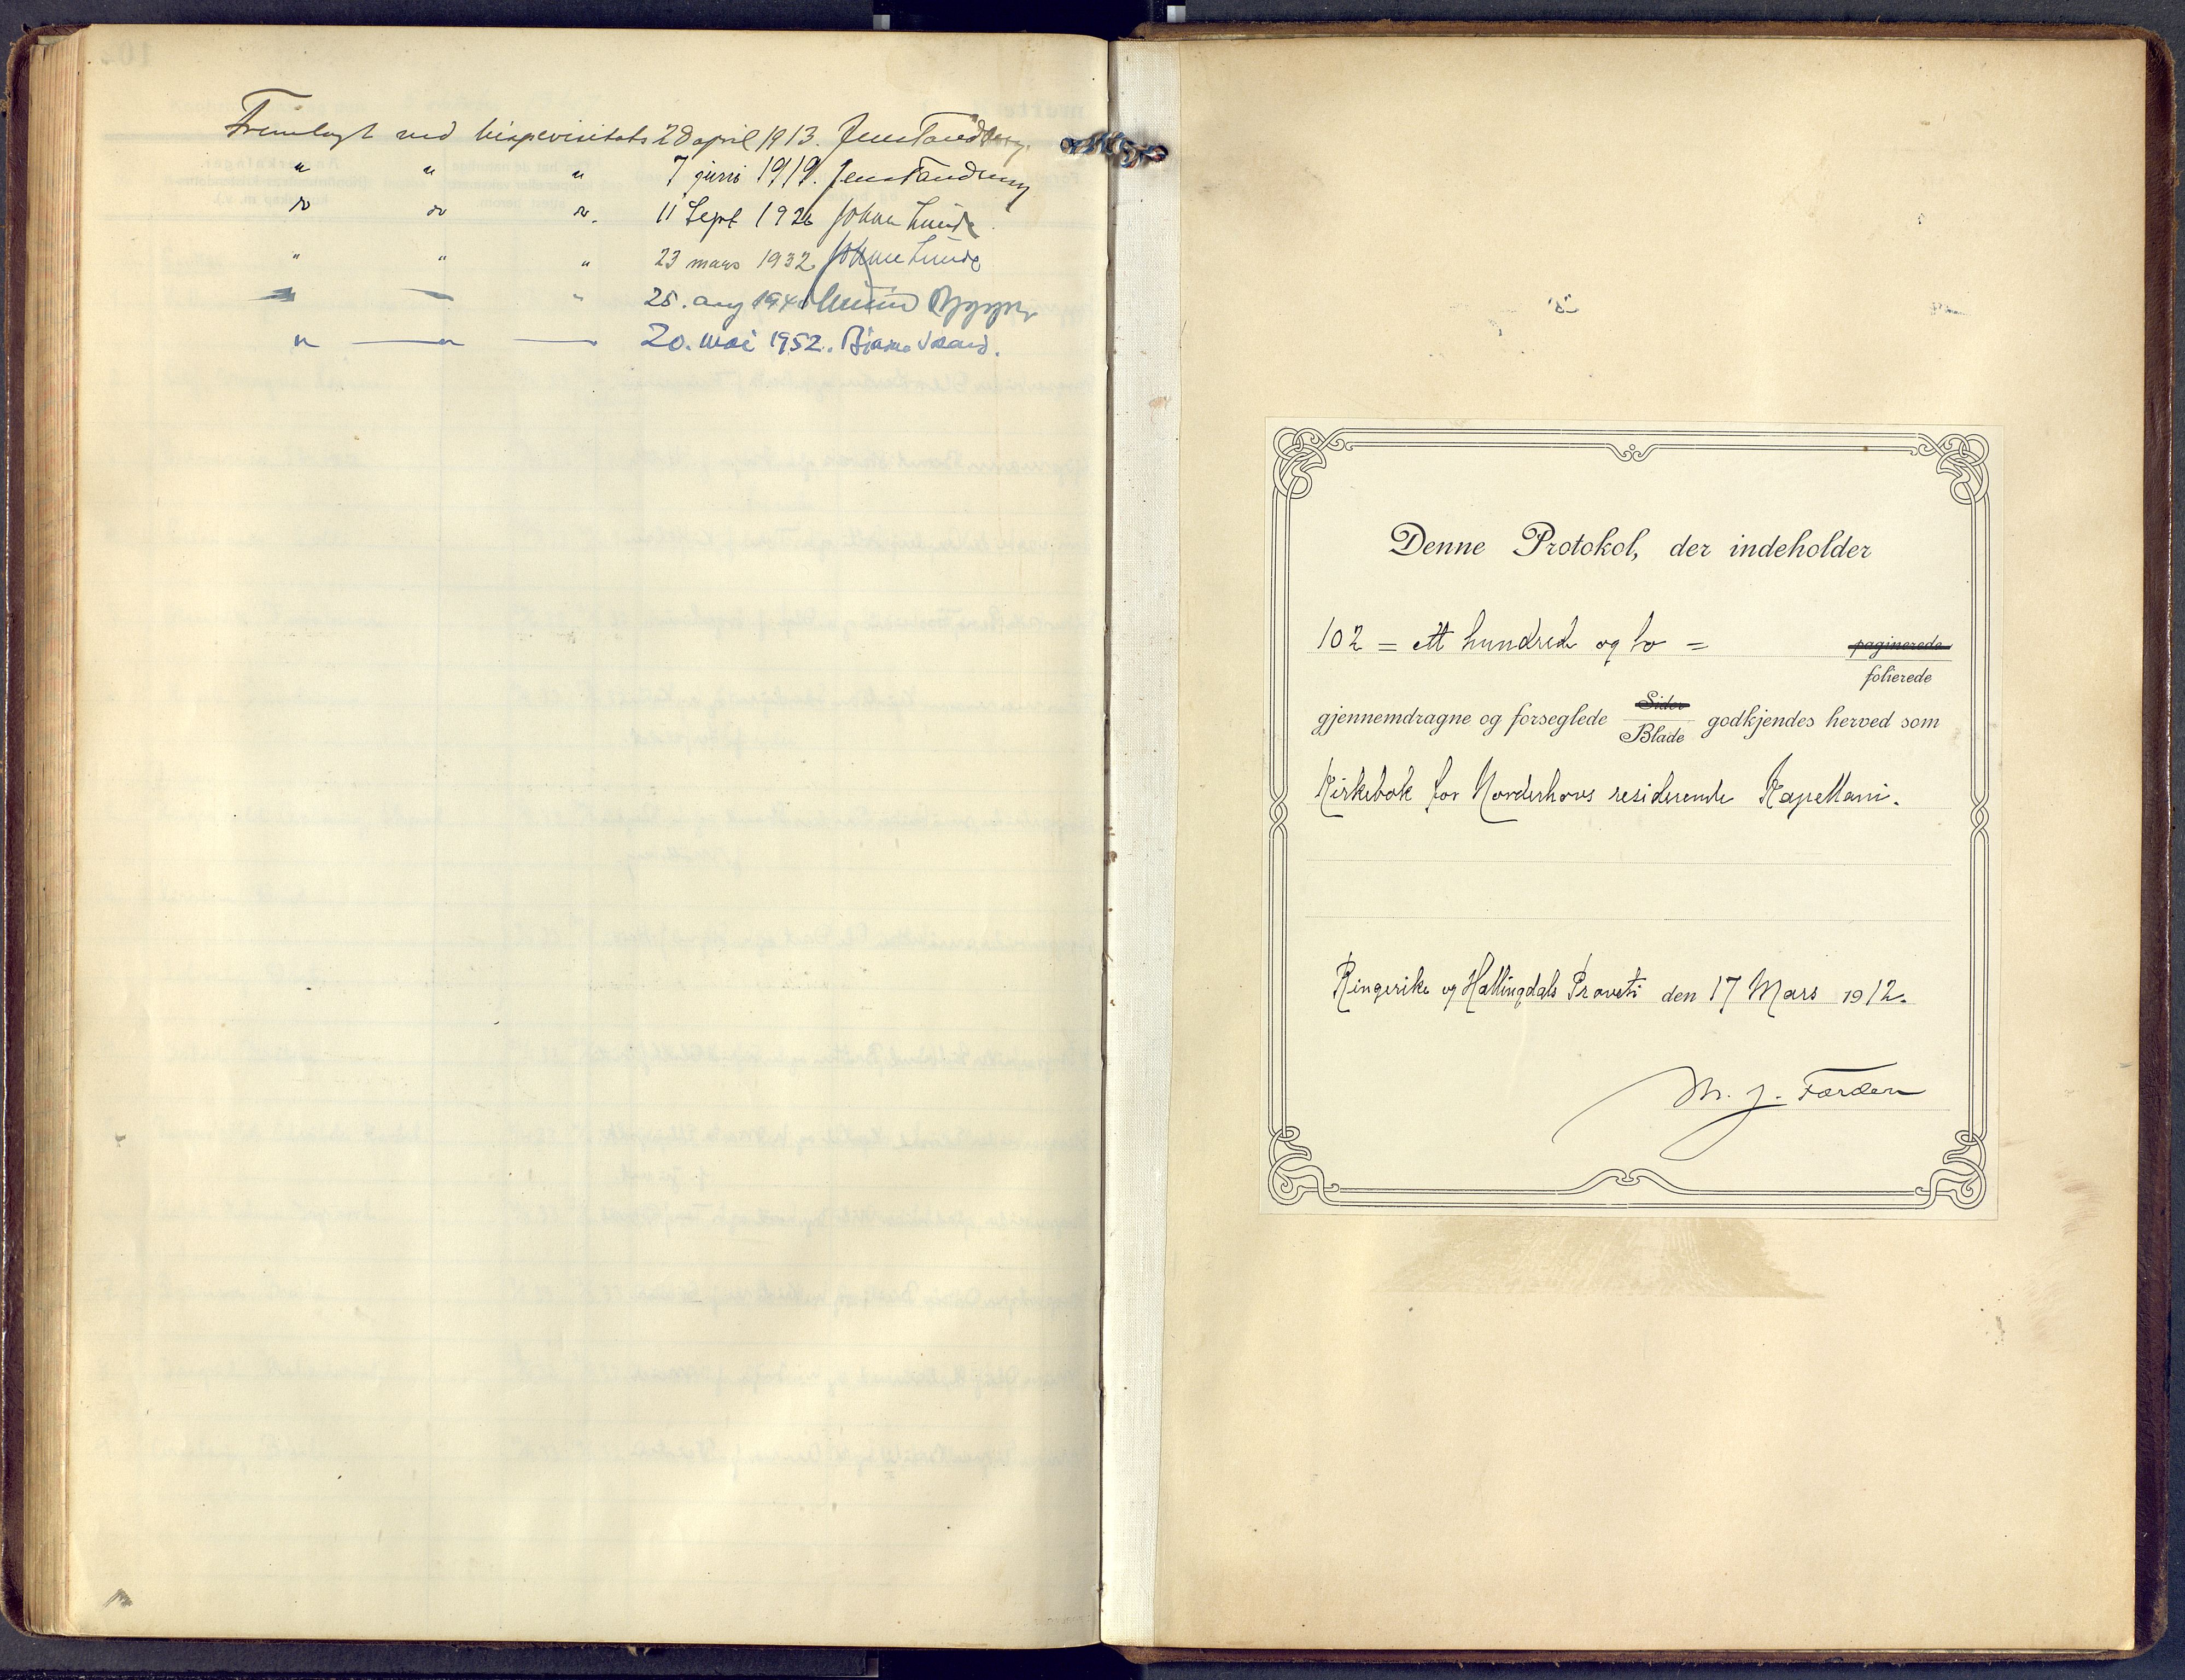 Fremlagt ved bispevisitats 28 april 1913. Jens Tandberg.
" " " 7 juni 1919. Jens Tandberg
do do do. 11 Sept 1926 Johan Lunde.
" " " 23 mars 1932 Johan Lunde
" 25. aug 1940
" — " — 20. mai 1952. Bjarne Skard.
Denne Protokol, der indeholder
102 = ett hundred og to = paginerede
folierede
Sider
gjennemdragne og forseglede Blade godkjendes herved som
Kirkebok for Norderhovs residerende Kapellani.
Ringerike og Hallingdals Provsti den 17 Mars 1912.
M. J. Færden